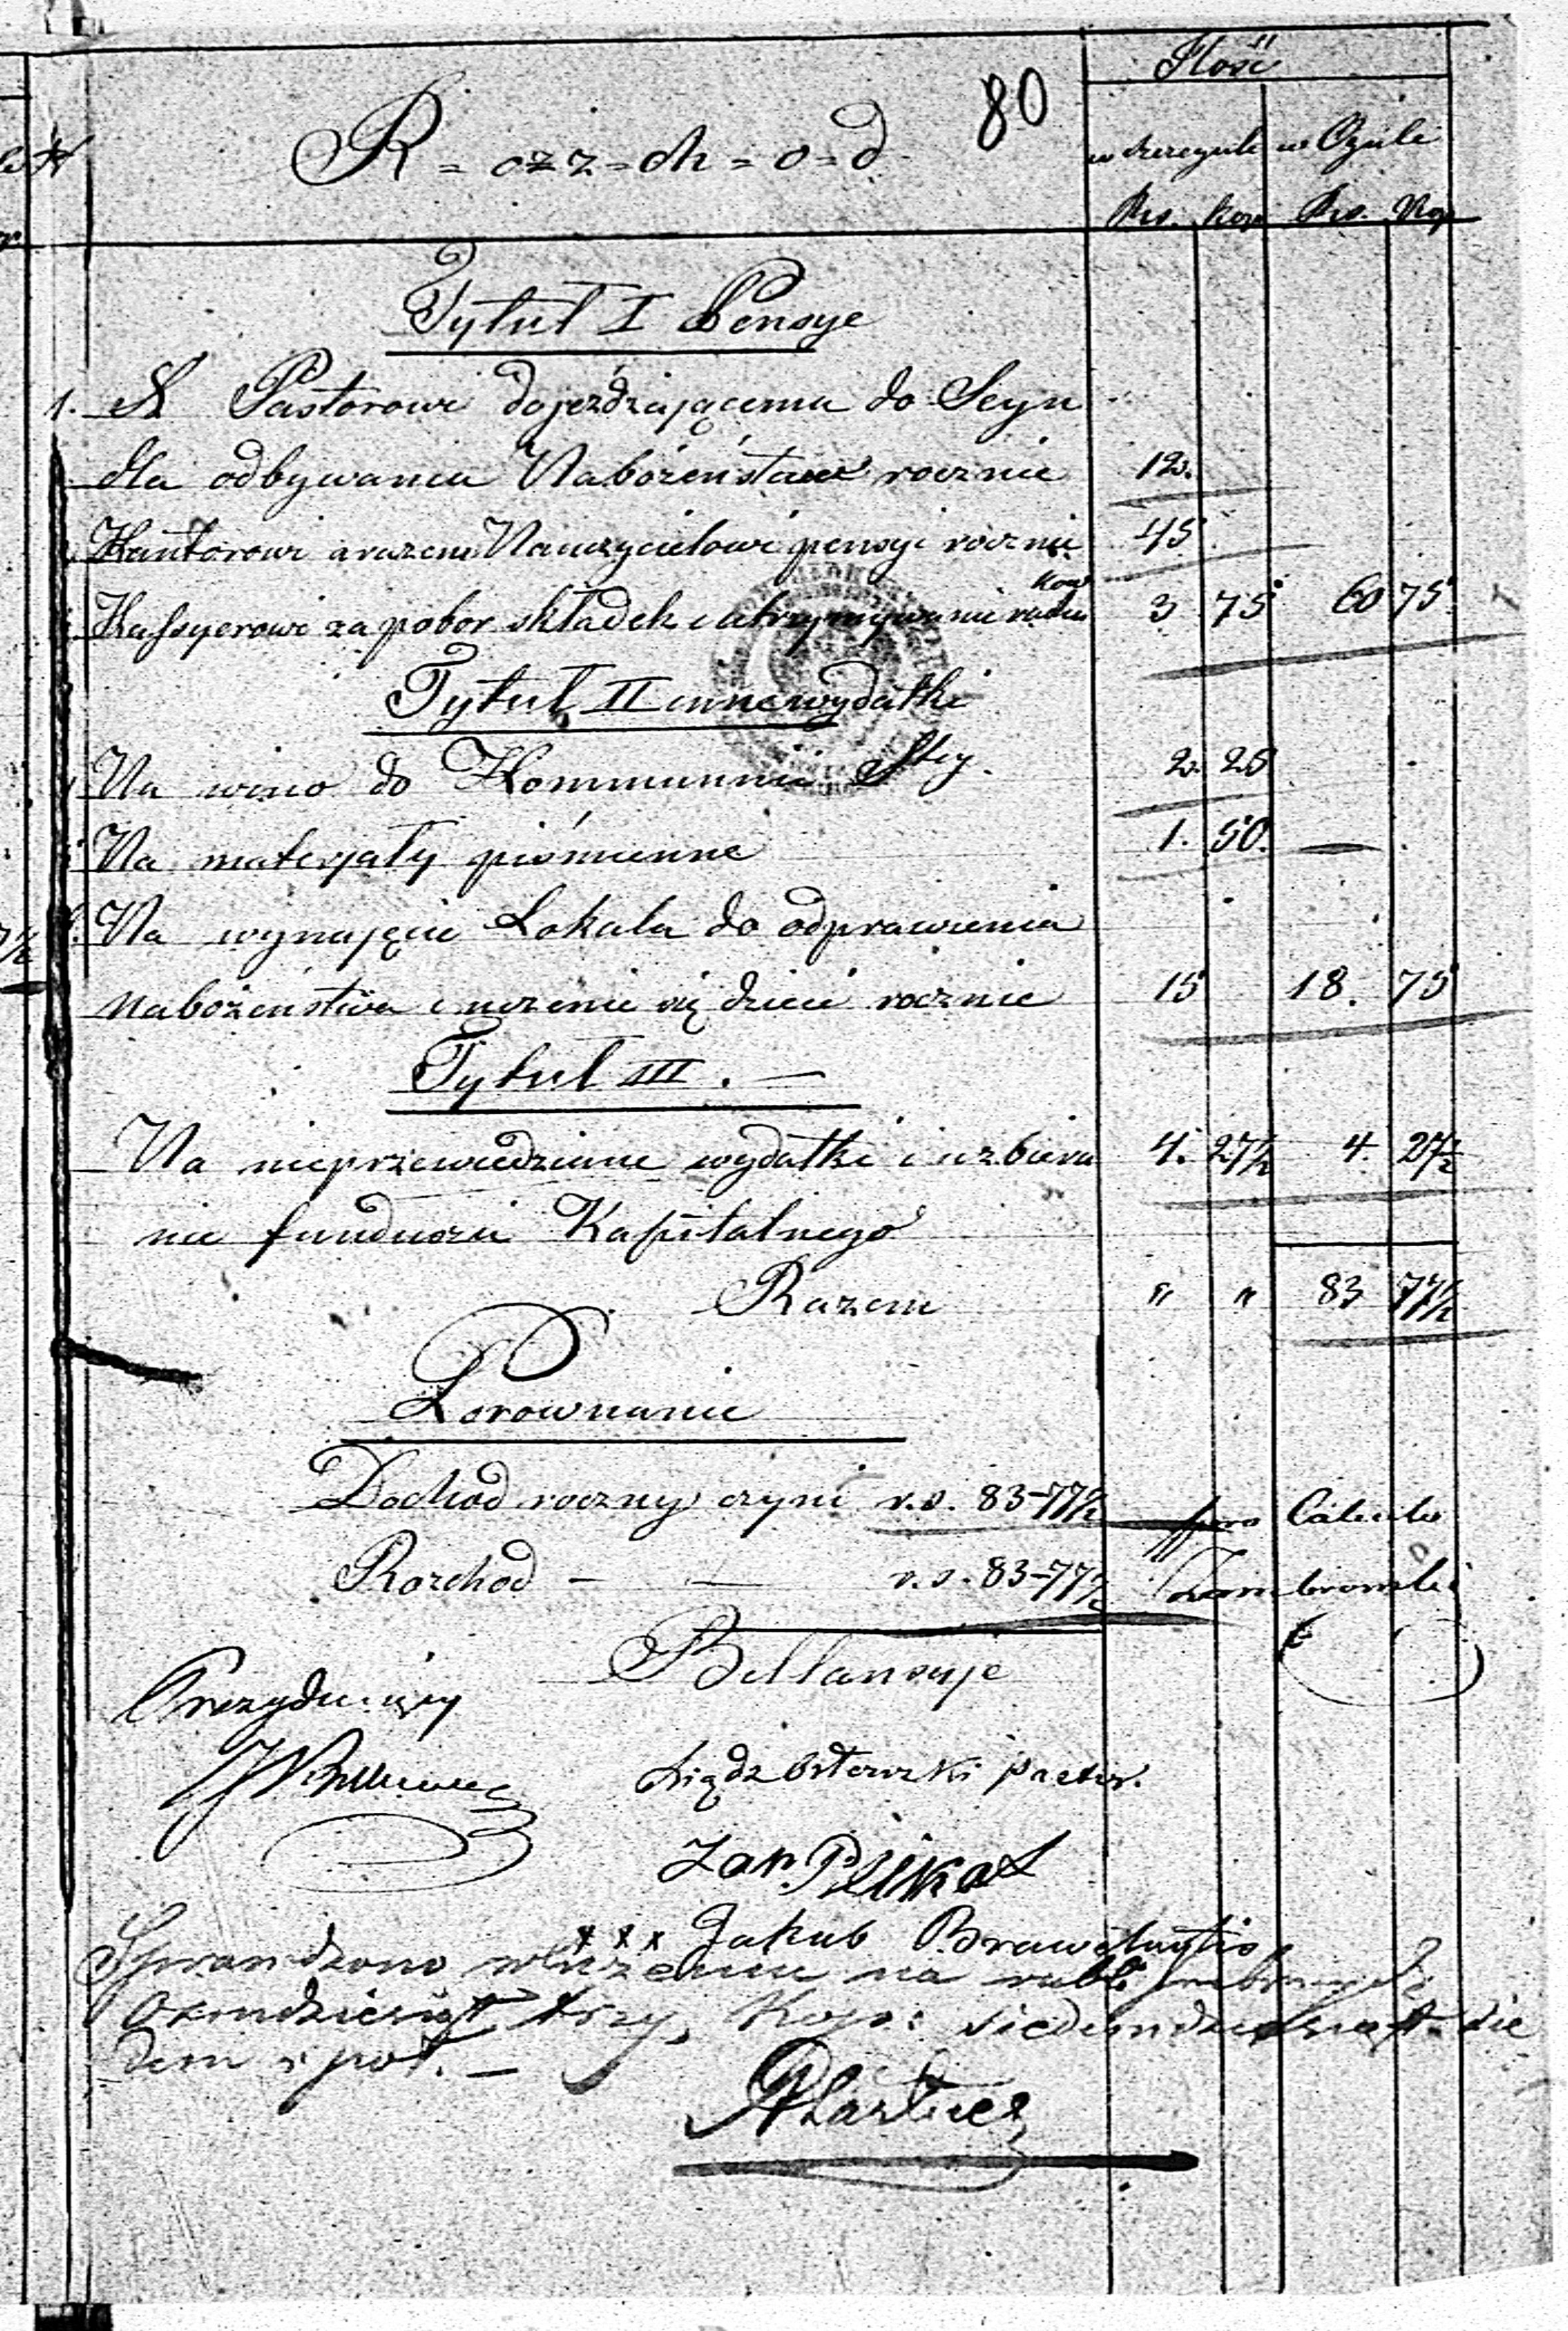 80
Ilość
R = ozz = ch = o = d
w szczególe w Ogóle
Rs. Kop Rs. Kop
Tytuł I Pensye
1. X Pastorowi dojeżdżającemu do Seyn
dla odbywania Nabożeństwa rocznie 12.
Kantorowi a razem Nauczycielowi pensyi rocznie 45
Kassyerowi za pobor składek i utrzymywanie rachun 3 75 60 75
Tytuł II inne wydatki
Na wino do Kommunii Stej. 2. 25
Na materjały piśmienne 1. 50. —
Na wynajęcie Lokalu do odprawienia
nabożeństwa i uczenie się dzieci rocznie 15 18. 75
Tytuł III. —
Na nieprzewidziane wydatki i uzbiera 4. 27½ 4 27½
nie funduszu Kapitalnego
Razem " " 83 77½
Porownanie
Dochod roczny czyni r.s. 83-77½ pro Calculo
Rozchod — — r.s. 83-77½
Billansuje
Prezydujący
Xiądz pastor.
Jan
xxx Jakub
Sprawdzono na rubli srebrnych
Ośmdziesiąt trzy, Kop: siedemdziesiąt sie
dem i pół. —